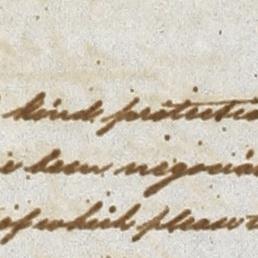 kind protectio
been negocia
of which please